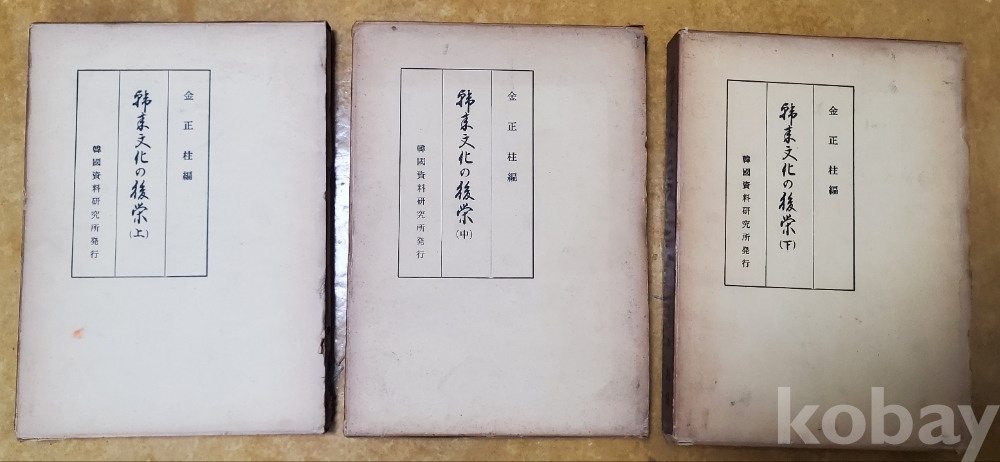 金正柱編
韓来文化の後栄(上)
韓國資料研究所発行
金正柱編
韓来文化の後栄(中)
韓國資料研究所発行
金正柱編
韓来文化の後栄(下)
韓國資料研究所発行
kobay